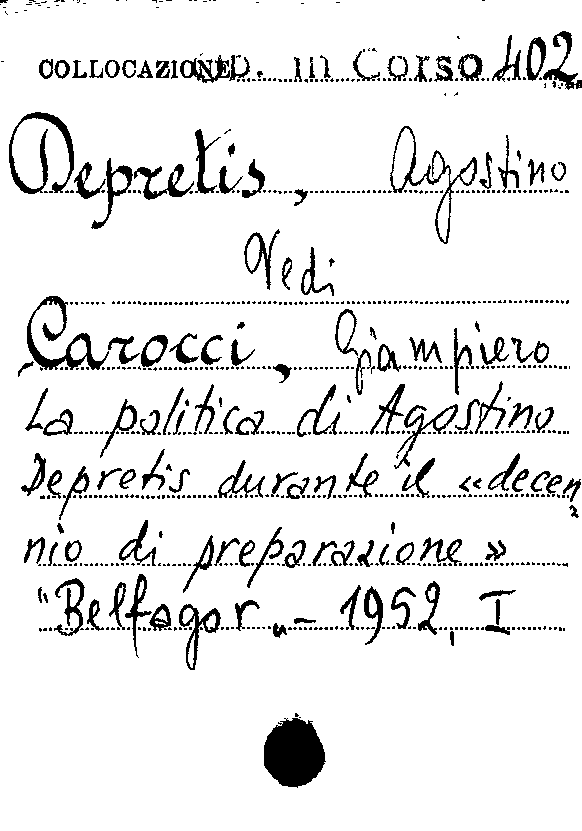 COLLOCAZIONE D. in Corso 402
Depretis, Agostino
Vedi
Carocci, Giampiero
La politica di Agostino
Depretis durante il «decen
nio di preparazione»
"Belfagor„ - 1952, I